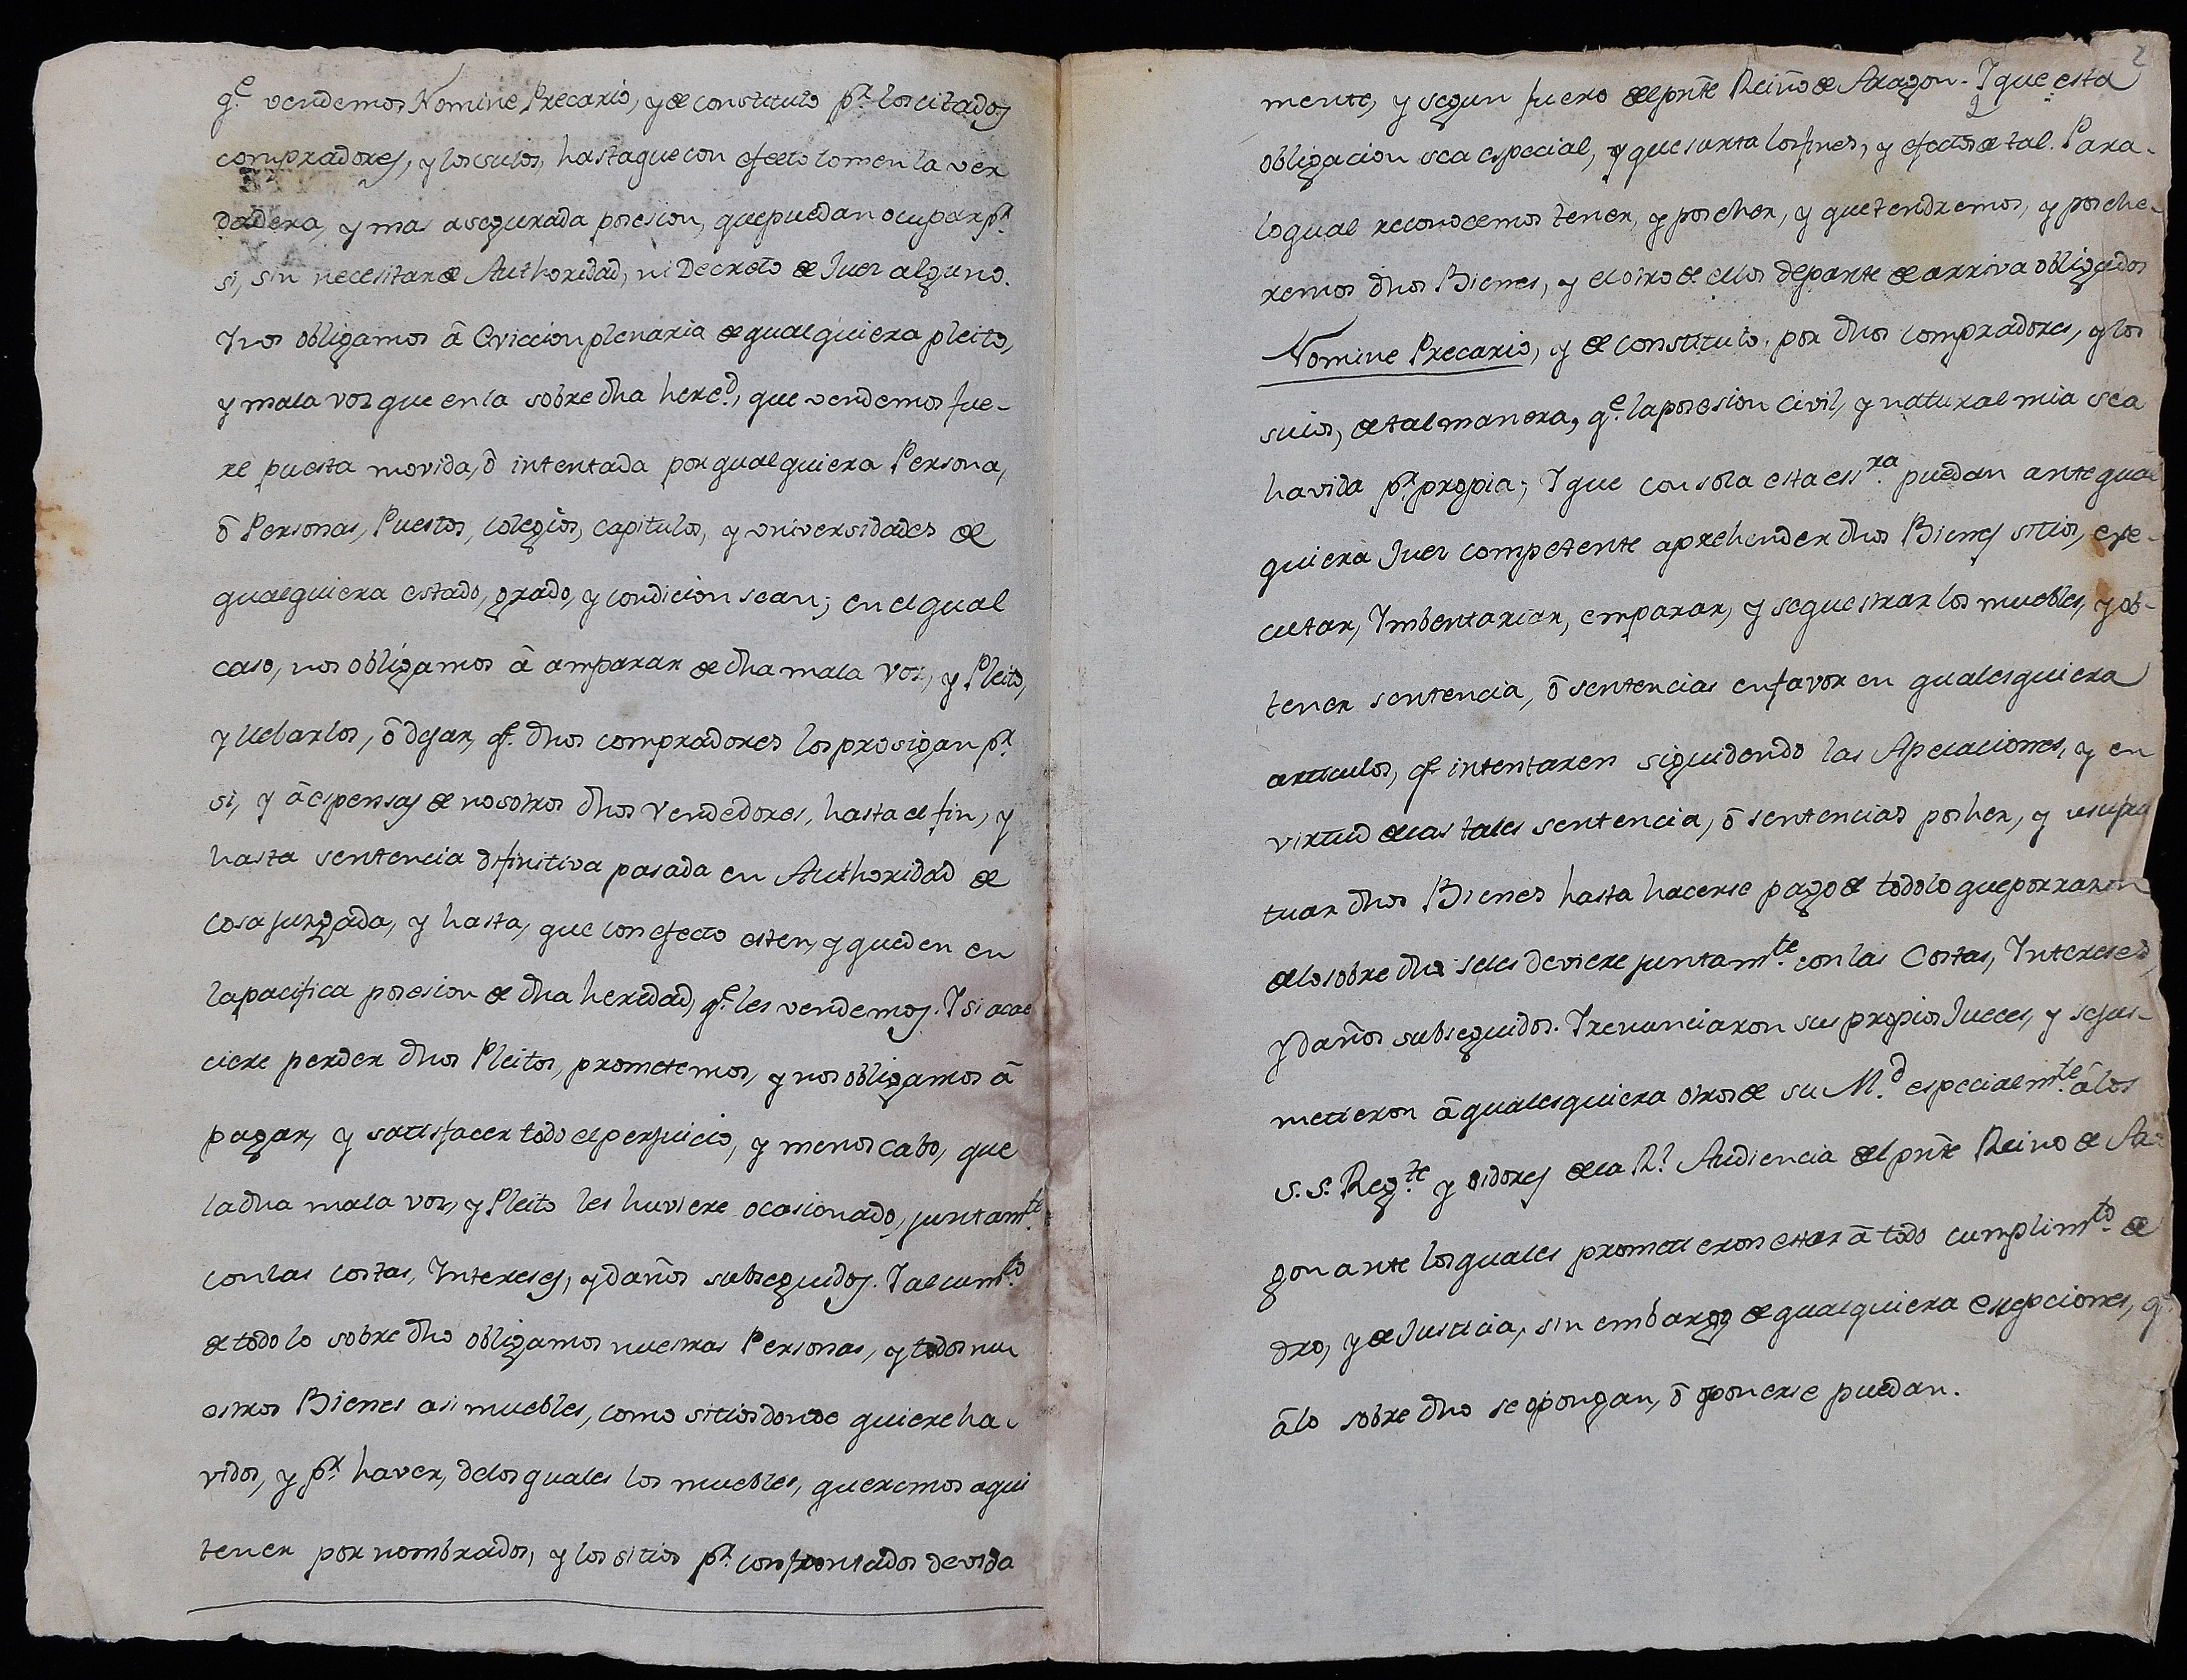 q.e vendemos Nomine Precario, y de constituto p.r los citados
compradores, y los suios, hasta que con efecto tomen la ver
dadera, y mas asegurada posesion, que puedan ocupar p.r
si, sin necesitar de Authoridad, ni Decreto de Juez alguno.
Y nos obligamos â Eviccion plenaria de qualquiera pleito,
y mala voz que en la sobre dha hered.d, que vendemos fue-
re puesta movida, ô intentada por qualquiera Persona,
ô Personas, Puestos, Colegios, Capitulos, y Vniversidades de
qualquiera estado, grado, y condicion sean; en el qual
caso, nos obligamos â amparar de dha mala Voz, y Pleito,
y llebarlos, ô dejar, q.e dhos compradores los prosigan p.r
si, y â espensas de nosotros dhos Vendedores, hasta el fin, y
hasta sentencia difinitiva pasada en Authoridad de
cosa juzgada, y hasta, que con efecto esten, y queden en
la pacifica posesion de dha heredad, q.e les vendemos. Y si acae
ciere perder dhos Pleitos, prometemos, y nos obligamos â
pagar, y satisfacer todo el perjuicio, y menos cabo, que
la dha mala voz, y Pleito les huviere ocasionado, juntam.te
con las costas, Intereses, y daños subseguidos. Y al cum.to
de todo lo sobre dho obligamos nuestras Personas, y todos nu
estros Bienes asi muebles, como sitios donde quiere ha-
vidos, y p.r haver, de los quales los muebles, queremos aqui
tener por nombrados, y los sitios p.r confrontados devida
2
mente, y segun fuero del pnte Reino de Aragon. Y que esta
obligacion sea especial, y que surta los fines, y efectos de tal. Para-
lo qual reconocemos tener, y poseher, y que tendremos, y posehe-
remos dhos Bienes, y el otro de ellos de parte de arriva obligados
Nomine Precario, y de constituto. por dhos compradores, y los
suios, de tal manera, q.e la posesion civil, y natural mia sea
havida p.r propia; Y que con sola esta ess.ra puedan ante qual
quiera Juez competente aprehender dhos Bienes sitios, eje-
cutar, Ymbentariar, emparar, y sequestrar los muebles, y ob-
tener sentencia, ô sentencias en favor en qualesquiera
articulos, q.e intentaren siguidendo las Apelaciones, y en
virtud de las tales sentencia, ô sentencias posher, y usufru
tuar dhos Bienes hasta hacerse pago de todo lo que por razon
de lo sobre dho se les deviere juntam.te con las Costas, Intereses,
y daños subseguidos. Y renunciaron sus propios Jueces, y se jus-
metieron â qualesquiera otros de su M.d especialm.te â los
S.S. Reg.te y oidores de la R.l Audiencia del pnte Reino de Ara
gon ante los quales prometieron estar â todo cumplim.to de
dro, y de Justicia, sin embargo de qualquiera esepciones, q.e
â lo sobre dho se opongan, ô oponerse puedan.